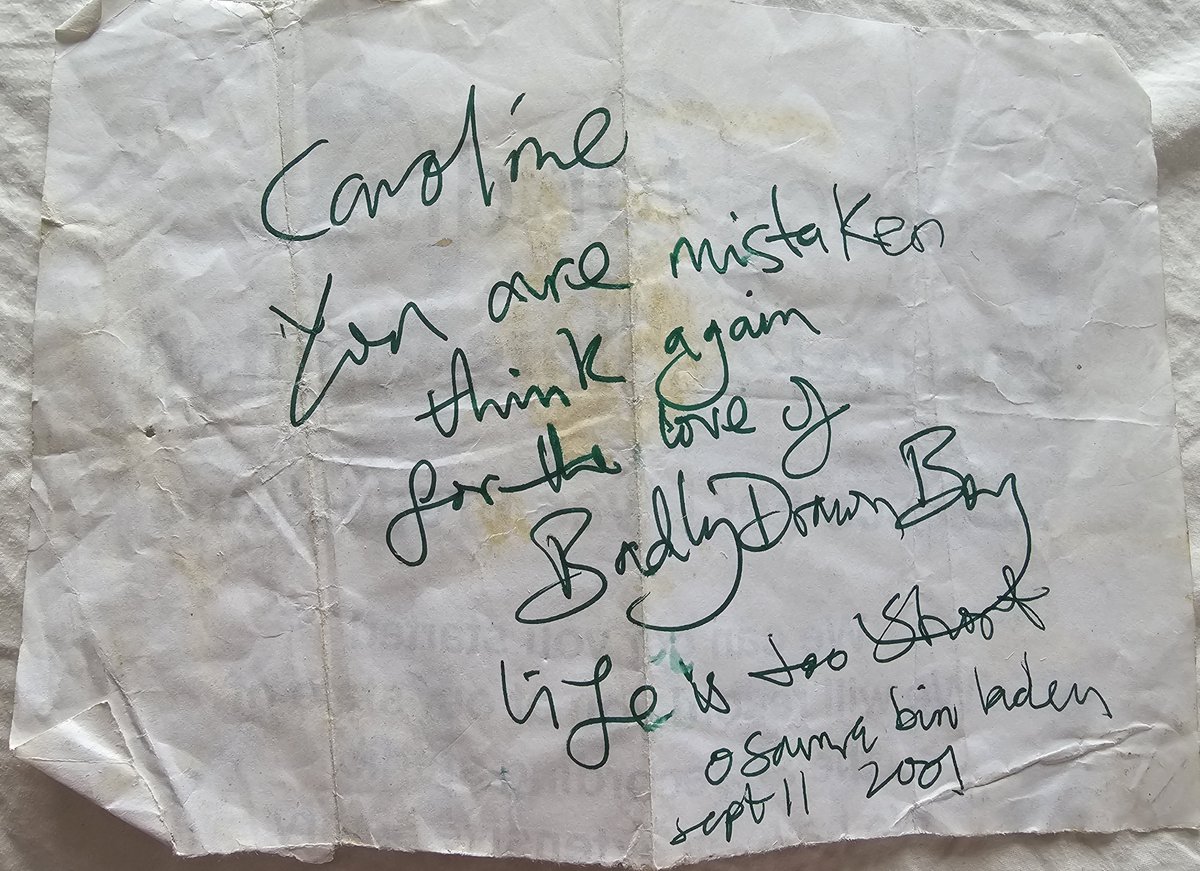 Caroline
You are mistaken
think again
for the love of
Badly Drawn Boy
life is too short
osama bin laden
sept 11 2001